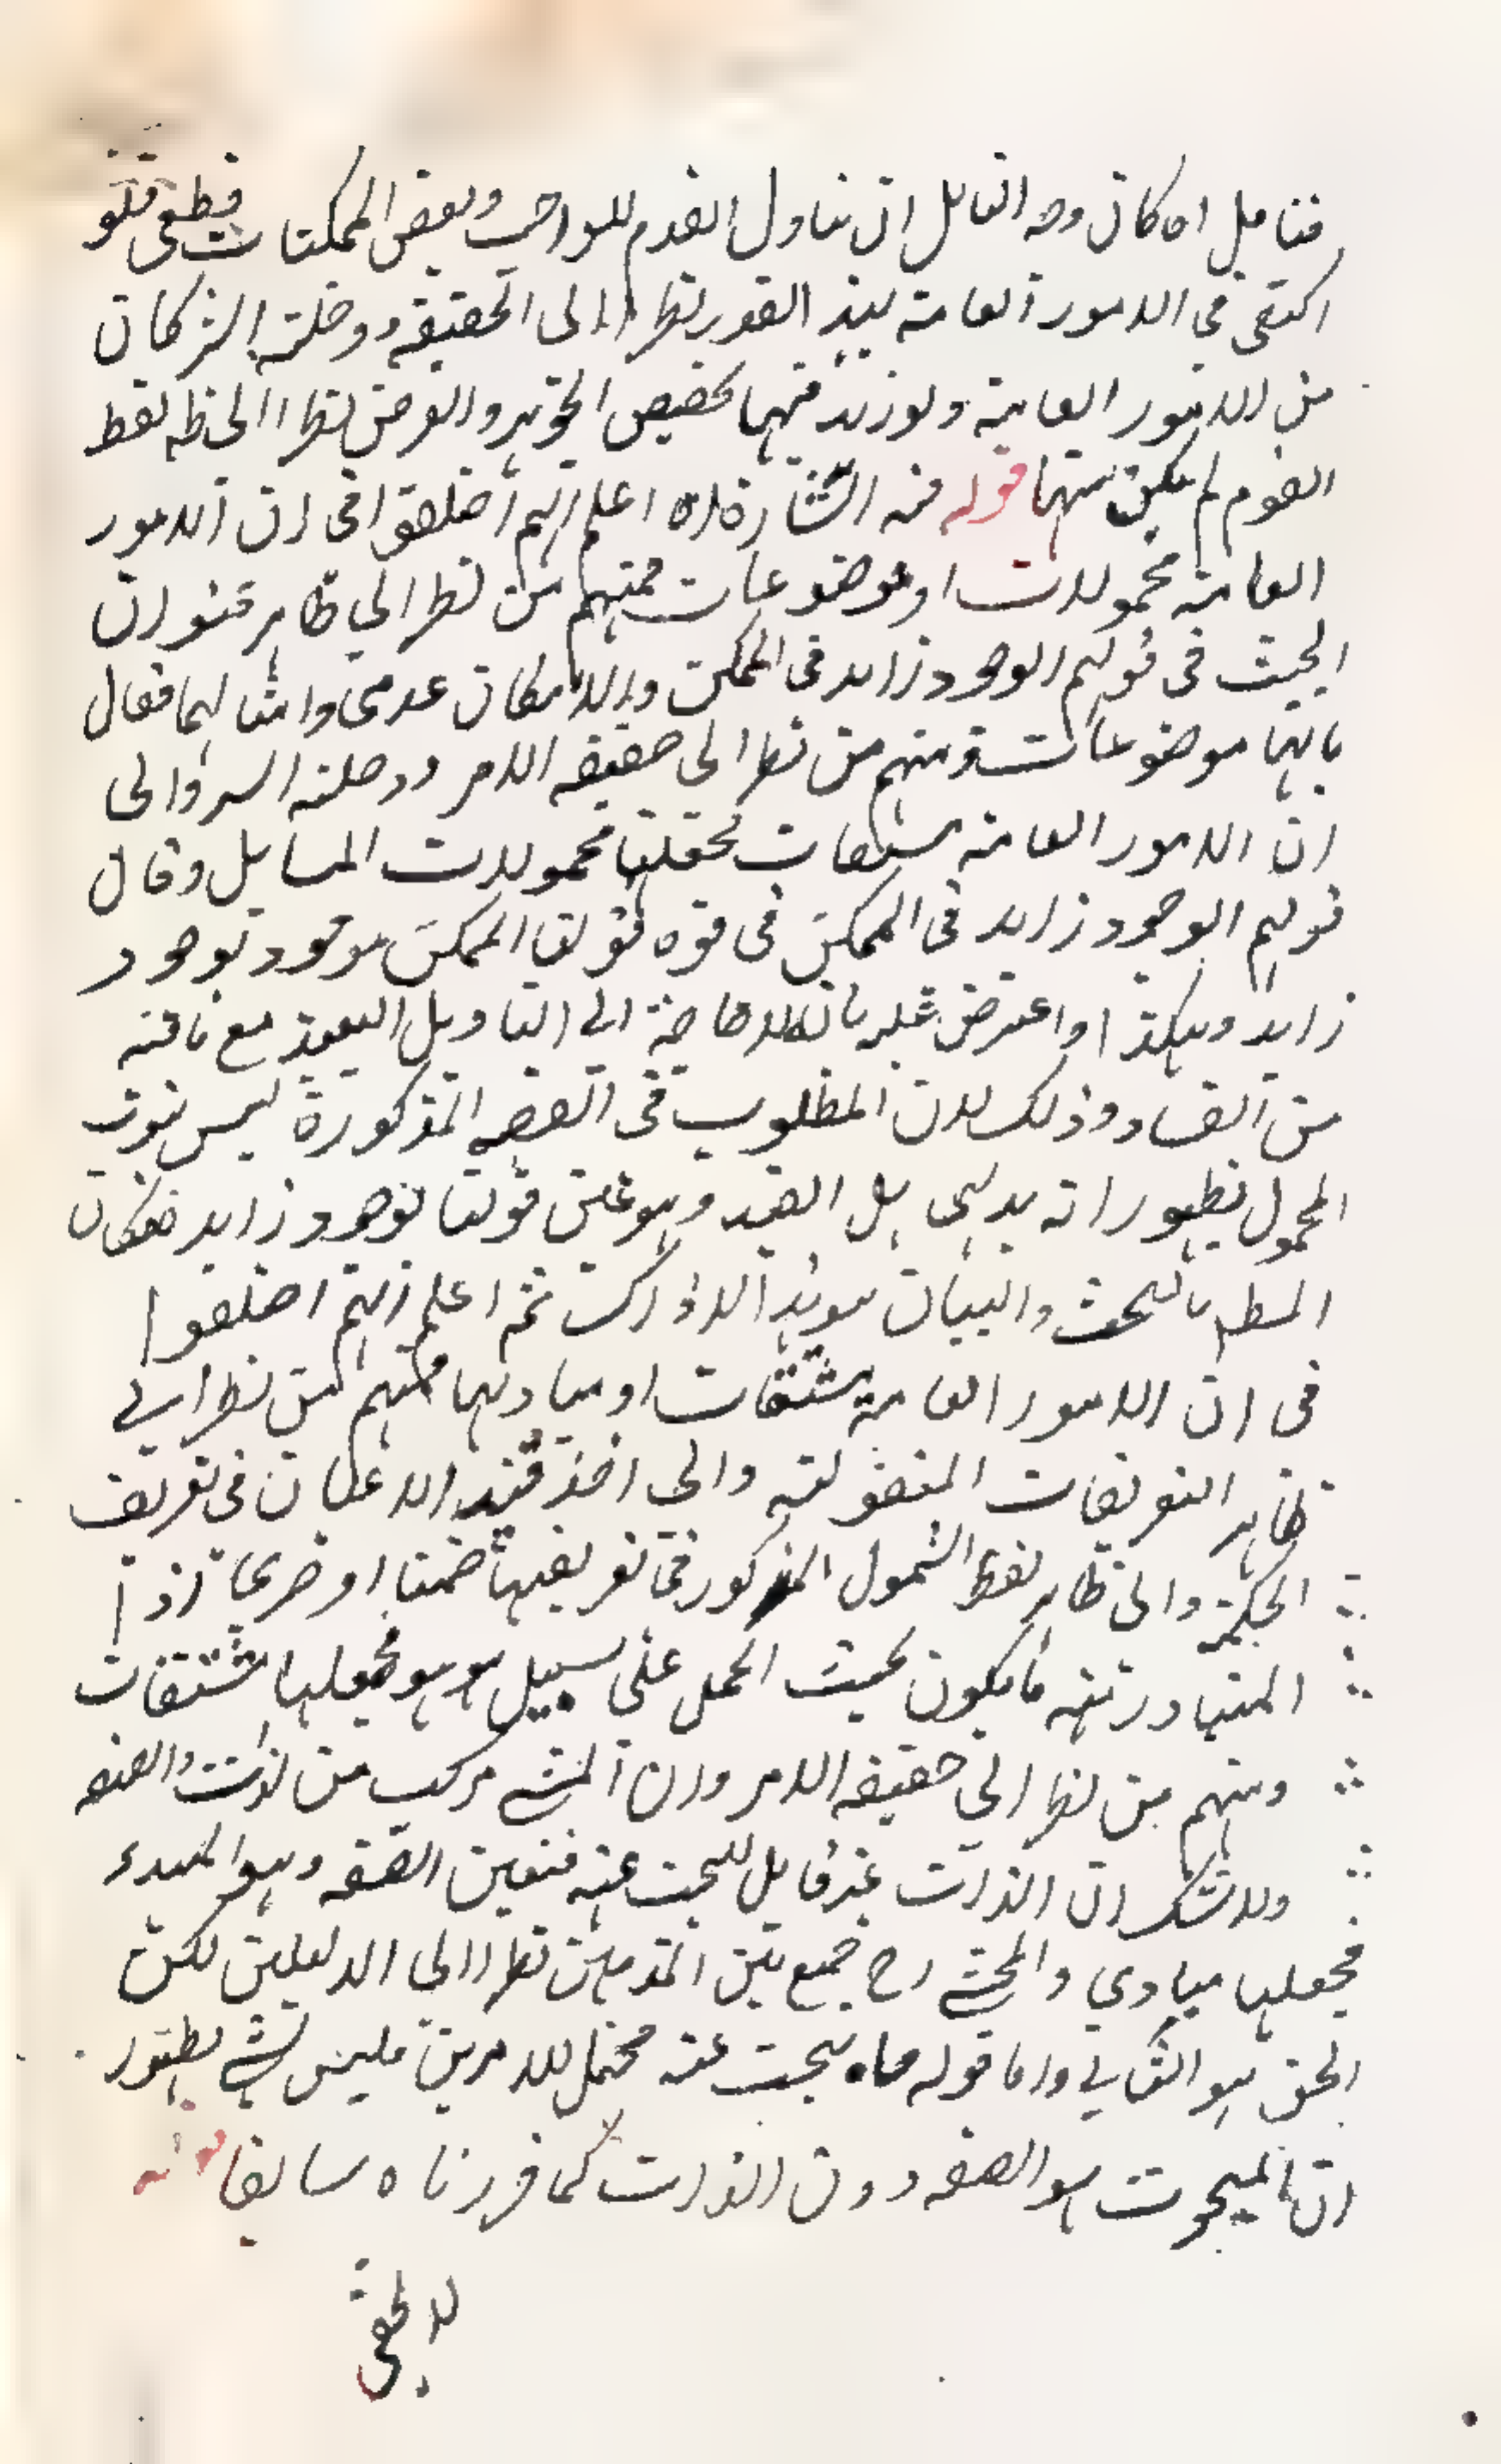 فتامل اه كان وجه القايل ان تناول القدم للواجب وبعض الممكنات قطعي فلو
اكتفى في الامور العامة بهذا القدر نظرا الى الحقيقة ودخلته الشركان
من الامور العامة ولو زيد فيها تخصيص الجوهر والعرض نظرا الى ظاهر لفظ
القوم لم يكن منها قوله فيه اشارة اه اعلم انهم اختلفوا في ان الامور
العامة محمولات او موضوعات فمنهم من نظر الي ظاهر عنوان
البحث في قولهم الوجود زايد في الممكن والامكان عدمي وامثالهما فقال
بانها موضوعات ومنهم من نظر الى حقيقة الامر ودخلته السر والى
ان الامور العامة مشتقات فجعلها محمولات المسايل وقال
قولهم الوجود زايد في الممكن في قوة قولنا الممكن موجود بوجود
زايد وهكذا واعترض عليه بانه لا حاجة الى التاويل البعيد مع ما فيه
من الفساد وذلك لان المطلوب في القضية المذكورة ليس ثبوت
المحمول لظهور انه بديهي بل القيد وهو عين قولنا الوجود زايد فكان
المطلوب بالبحث والبيان هو هذا الادراك ثم اعلم انهم اختلفوا
في ان الامور العامة مشتقات او مباديها فمنهم من نظر الى
ظاهر التعريفات المنقولة والى اخذ قيد الاعيان في تعريف
الحكمة والى ظاهر لفظ الشمول المذكور في تعريفها ضمنا او صريحا اذا
المتبادر منه ما يكون بحيث الحمل على سبيل هو هو فجعلها مشتقات
ومنهم من نظر الي حقيقة الامر وان المشتق مركب من الذات والصفة
ولا شك ان الذات غير قابل للبحث عنه فتعين الصفة وهو المبدء
فجعلها مبادي والمحشي رح جمع بين المذهبين نظرا الى الدليلين لكن
الحق هو الثاني واما قوله ما يبحث عنه محتمل للامرين فليس بشئ لظهور
ان المبحوث هو الصفة دون الذات كما قررناه سابقا قوله
لا يخفى